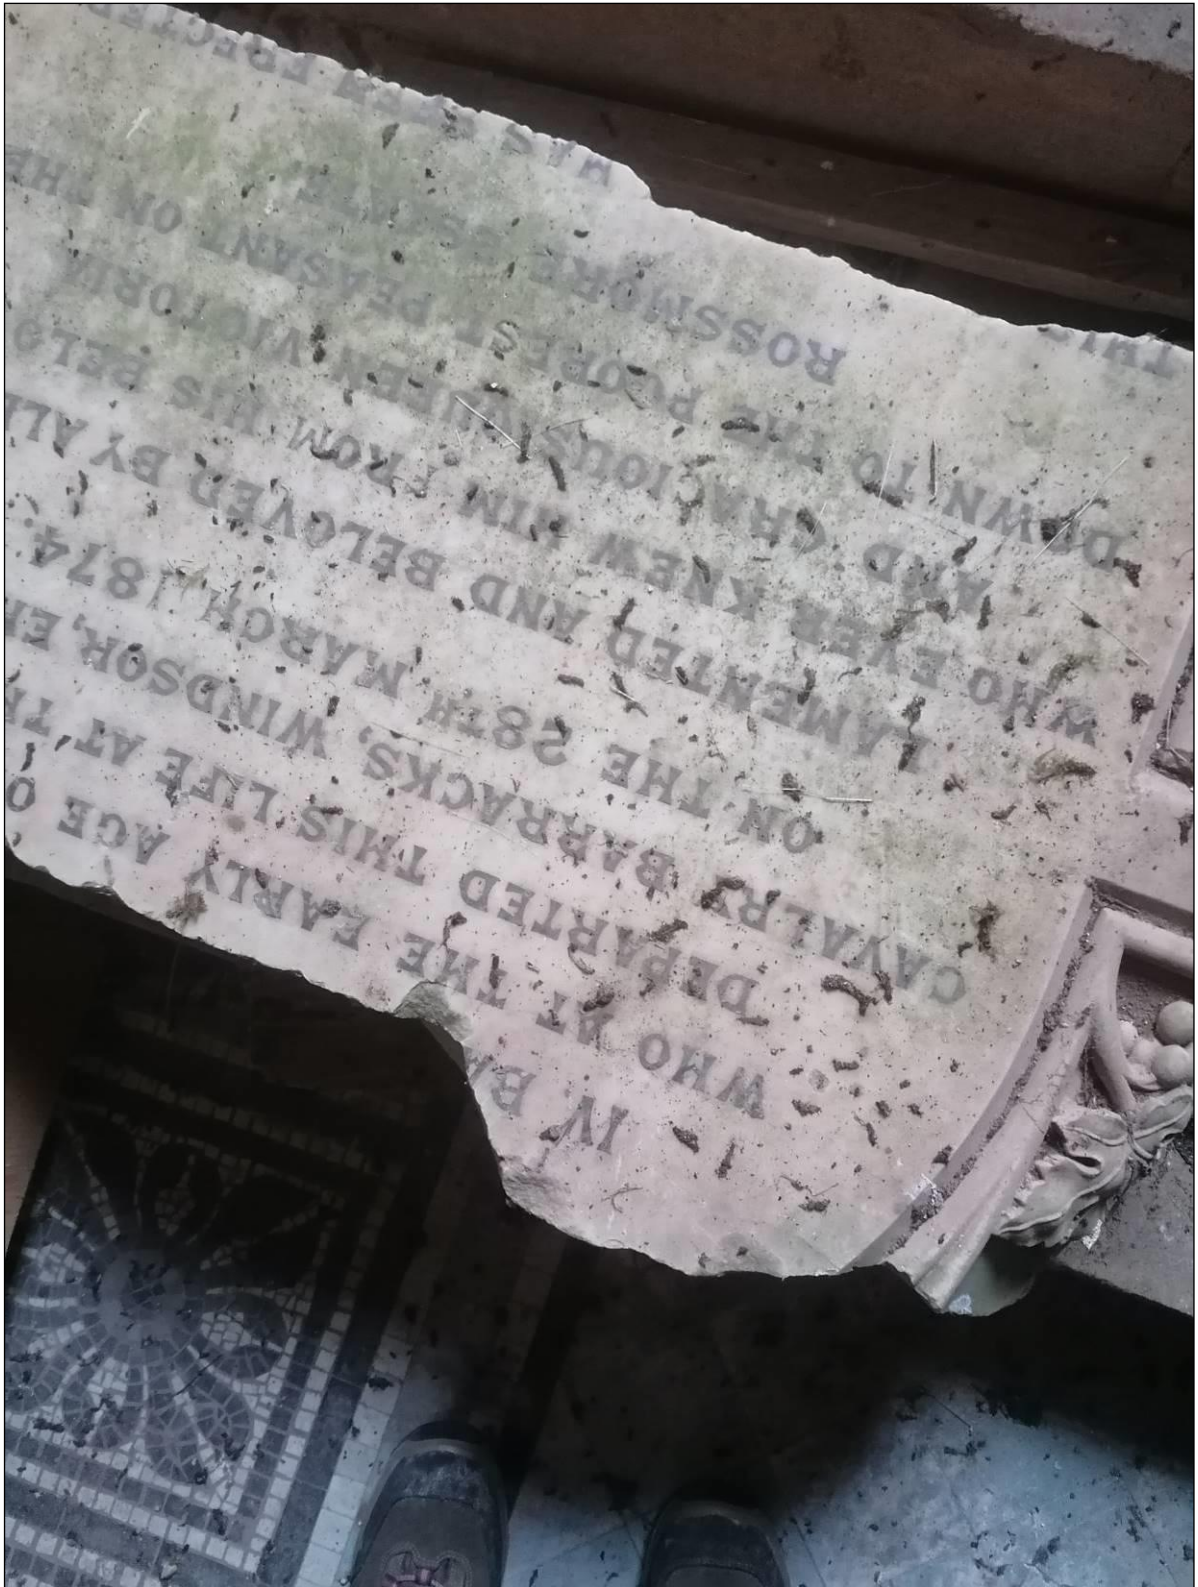 IV BA
WHO AT THE EARLY AGE O
DEPARTED THIS LIFE AT TH
CAVALRY BARRACKS, WINDSOR, EN
ON THE 28TH MARCH 1874.
LAMENTED AND BELOVED BY ALL
WHO EVER KNEW HIM FROM HIS BELO
AND GRACIOUS QUEEN VICTORIA
DOWN TO THE POOREST PEASANT ON THE
ROSSMORE ESTATE
THIS HAS BEEN ERECTED